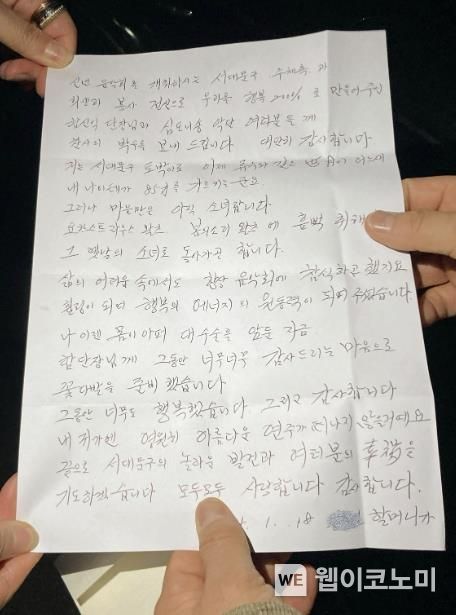 신년 음악회를 개최하시는 서대문구 주최측과
희생과 봉사 정신으로 우리를 행복 200%로 만들어주신
함신익 단장님과 심포니송 악단 여러분들께
감사의 박수를 보내 드립니다 대단히 감사합니다
저는 서대문구 토박이로 이제 유수와 같은 세월이 어느새
내 나이테가 을 가르키는군요.
그러나 마음만은 아직 소녀랍니다
요한스트라우스 왈츠 봄의소리 왈츠에 흠뻑 취해
그 옛날의 소녀로 돌아가곤 합니다.
삶의 어려움 속에서도 항상 음악회에 참석하곤 했기요
힐링이 되며 행복의 에너지의 원동력이 되어 주셨습니다.
나 이젠 몸이 아퍼 대수술을 앞둔 지금.
함단장님께 그동안 너무너무 감사드리는 마음으로
꽃다발을 준비했습니다
그동안 너무도 행복했습니다 그리고 감사합니다
내 귀가엔 영원히 아름다운 연주가 떠나지 않을거예요
끝으로 서대문구의 놀라운 발전과 여러분의 幸福을
기도하겠습니다 모두모두 사랑합니다 감사합니다.
1. 18 할머니가
WE 웹이코노미